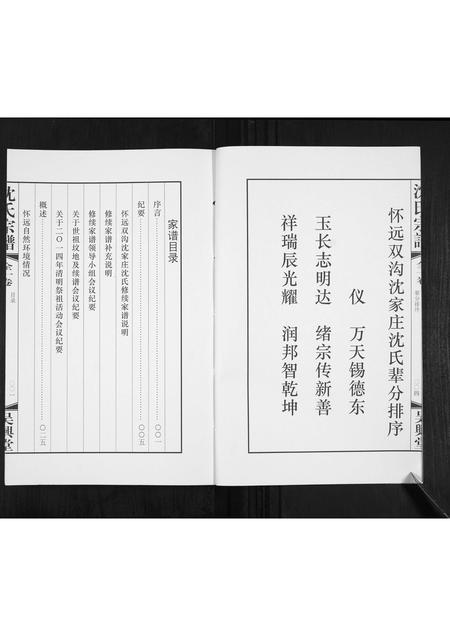 沈氏宗譜
一卷
辈分排序
二〇四
吳興堂
怀远双沟沈家庄沈氏辈分排序
仪 万天锡德东
玉长志明达 绪宗传新善
祥瑞辰光耀 润邦智乾坤
家谱目录
序言……〇〇一
纪要……〇〇五
怀远双沟沈家庄沈氏修续家谱说明
修续家谱补充说明
修续家谱领导小组会议纪要
关于世祖坟地及续谱会议纪要
关于二〇一四年清明祭祖活动会议纪要
概述……〇二五
怀远自然环境情况
沈氏宗譜
全一卷
目录
吳興堂